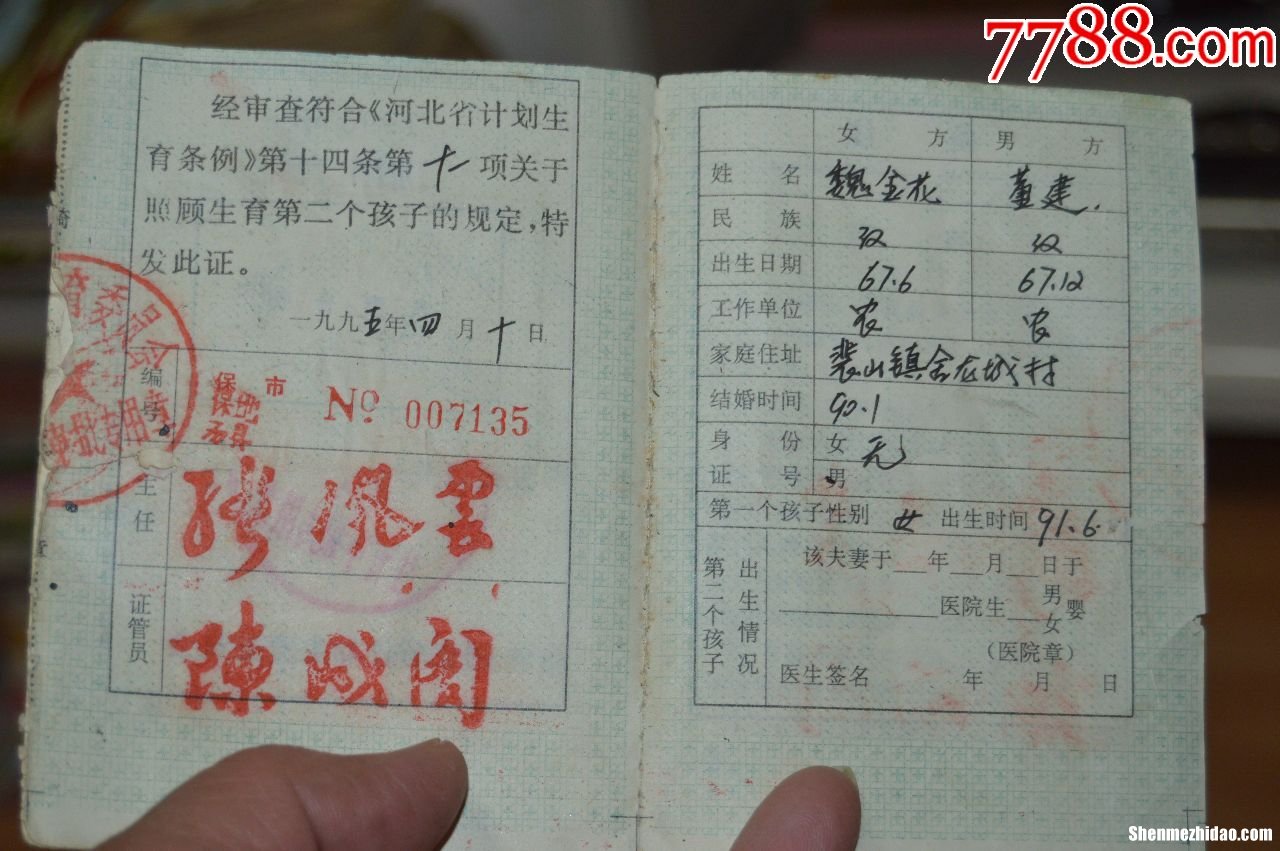 7788.com
经审查符合《河北省计划生
育条例》第十四条第十一项关于
照顾生育第二个孩子的规定,特
发此证。
一九九五年四月十日
编号
保 市
№ 007135
主任
張風雲
证管员
陳成阁
女方 男方
姓名 魏金花 董建
民族 汉 汉
出生日期 67.6 67.12
工作单位 农 农
家庭住址 裴山镇舍龙城村
结婚时间 90.1
身份证号 女 无
男
第一个孩子性别 女 出生时间 91.6
第二个孩子
出生情况
该夫妻于__年__月__日于
______医院生__男女婴
(医院章)
医生签名 年 月 日
Shenmezhidao.com